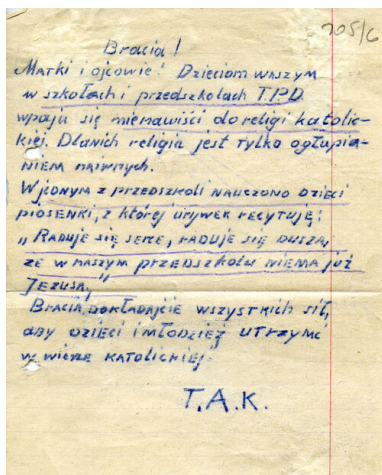 205/6
Bracia!
Matki i ojcowie! Dzieciom waszym
w szkołach i przedszkolach T.P.D.
wpaja się nienawiści do religi katolic-
kiej. Dlanich religia jest tylko ogłupia-
niem naiwnych.
W jednym z przedszkoli nauczono dzieci
piosenki, z której urywek recytuję:
"Raduje się serce, raduje się dusza,
że w naszym przedszkolu niema już
Jezusa,"
Bracia, dokładajcie wszystkich sił,
aby dzieci i młodzież utrzymć
w wierze katolickiej.
T.A.K.